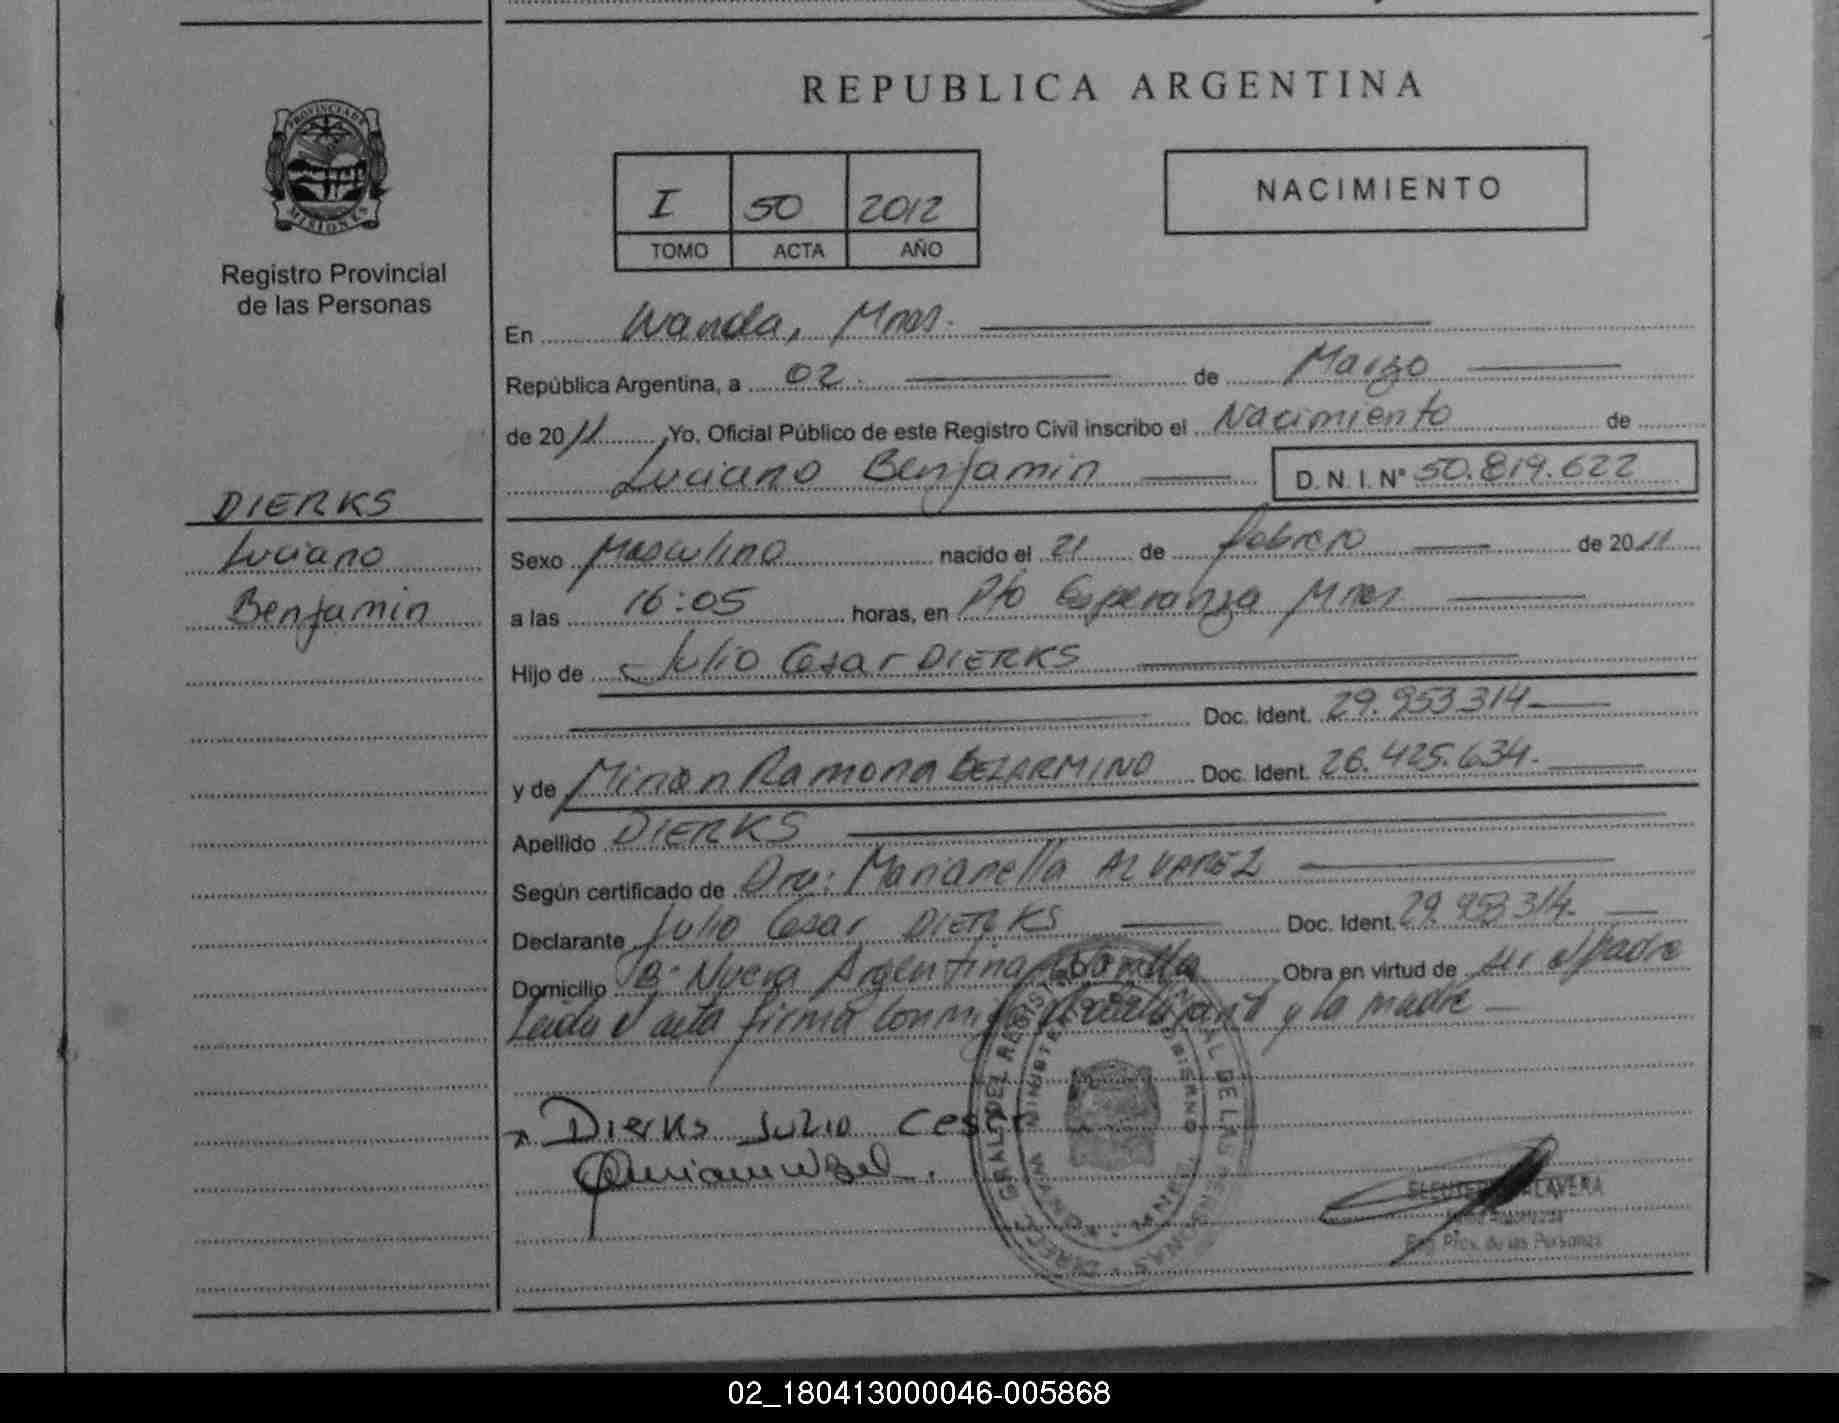 REPUBLICA ARGENTINA
PROVINCIA DE
MISIONES
Registro Provincial
de las Personas
I 50 2012
TOMO ACTA AÑO
NACIMIENTO
En Wanda, Mnes.
República Argentina, a 02. de Marzo
de 2011 Yo, Oficial Público de este Registro Civil inscribo el Nacimiento de
Luciano Benjamin D.N.I.N° 50.819.622
DIERKS
Luciano
Benjamin
Sexo Masculino nacido el 21 de febrero de 2011
a las 16:05 horas, en Pto Esperanza Mnes
Hijo de Julio Cesar DIERKS
Doc. Ident. 29.953.314
y de Ramona BELARMINO Doc. Ident. 26.425.634.
Apellido DIERKS
Según certificado de Dra: Marianella ALVAREZ
Declarante Julio Cesar DIERKS Doc. Ident. 29.953.314.
Domicilio B° Nueva Argentina Obra en virtud de ser el padre
Leida el acta firma conmigo y la madre
x Dierks Julio Cesar
TALAVERA
Reg. Prov. de las Personas
02_180413000046-005868